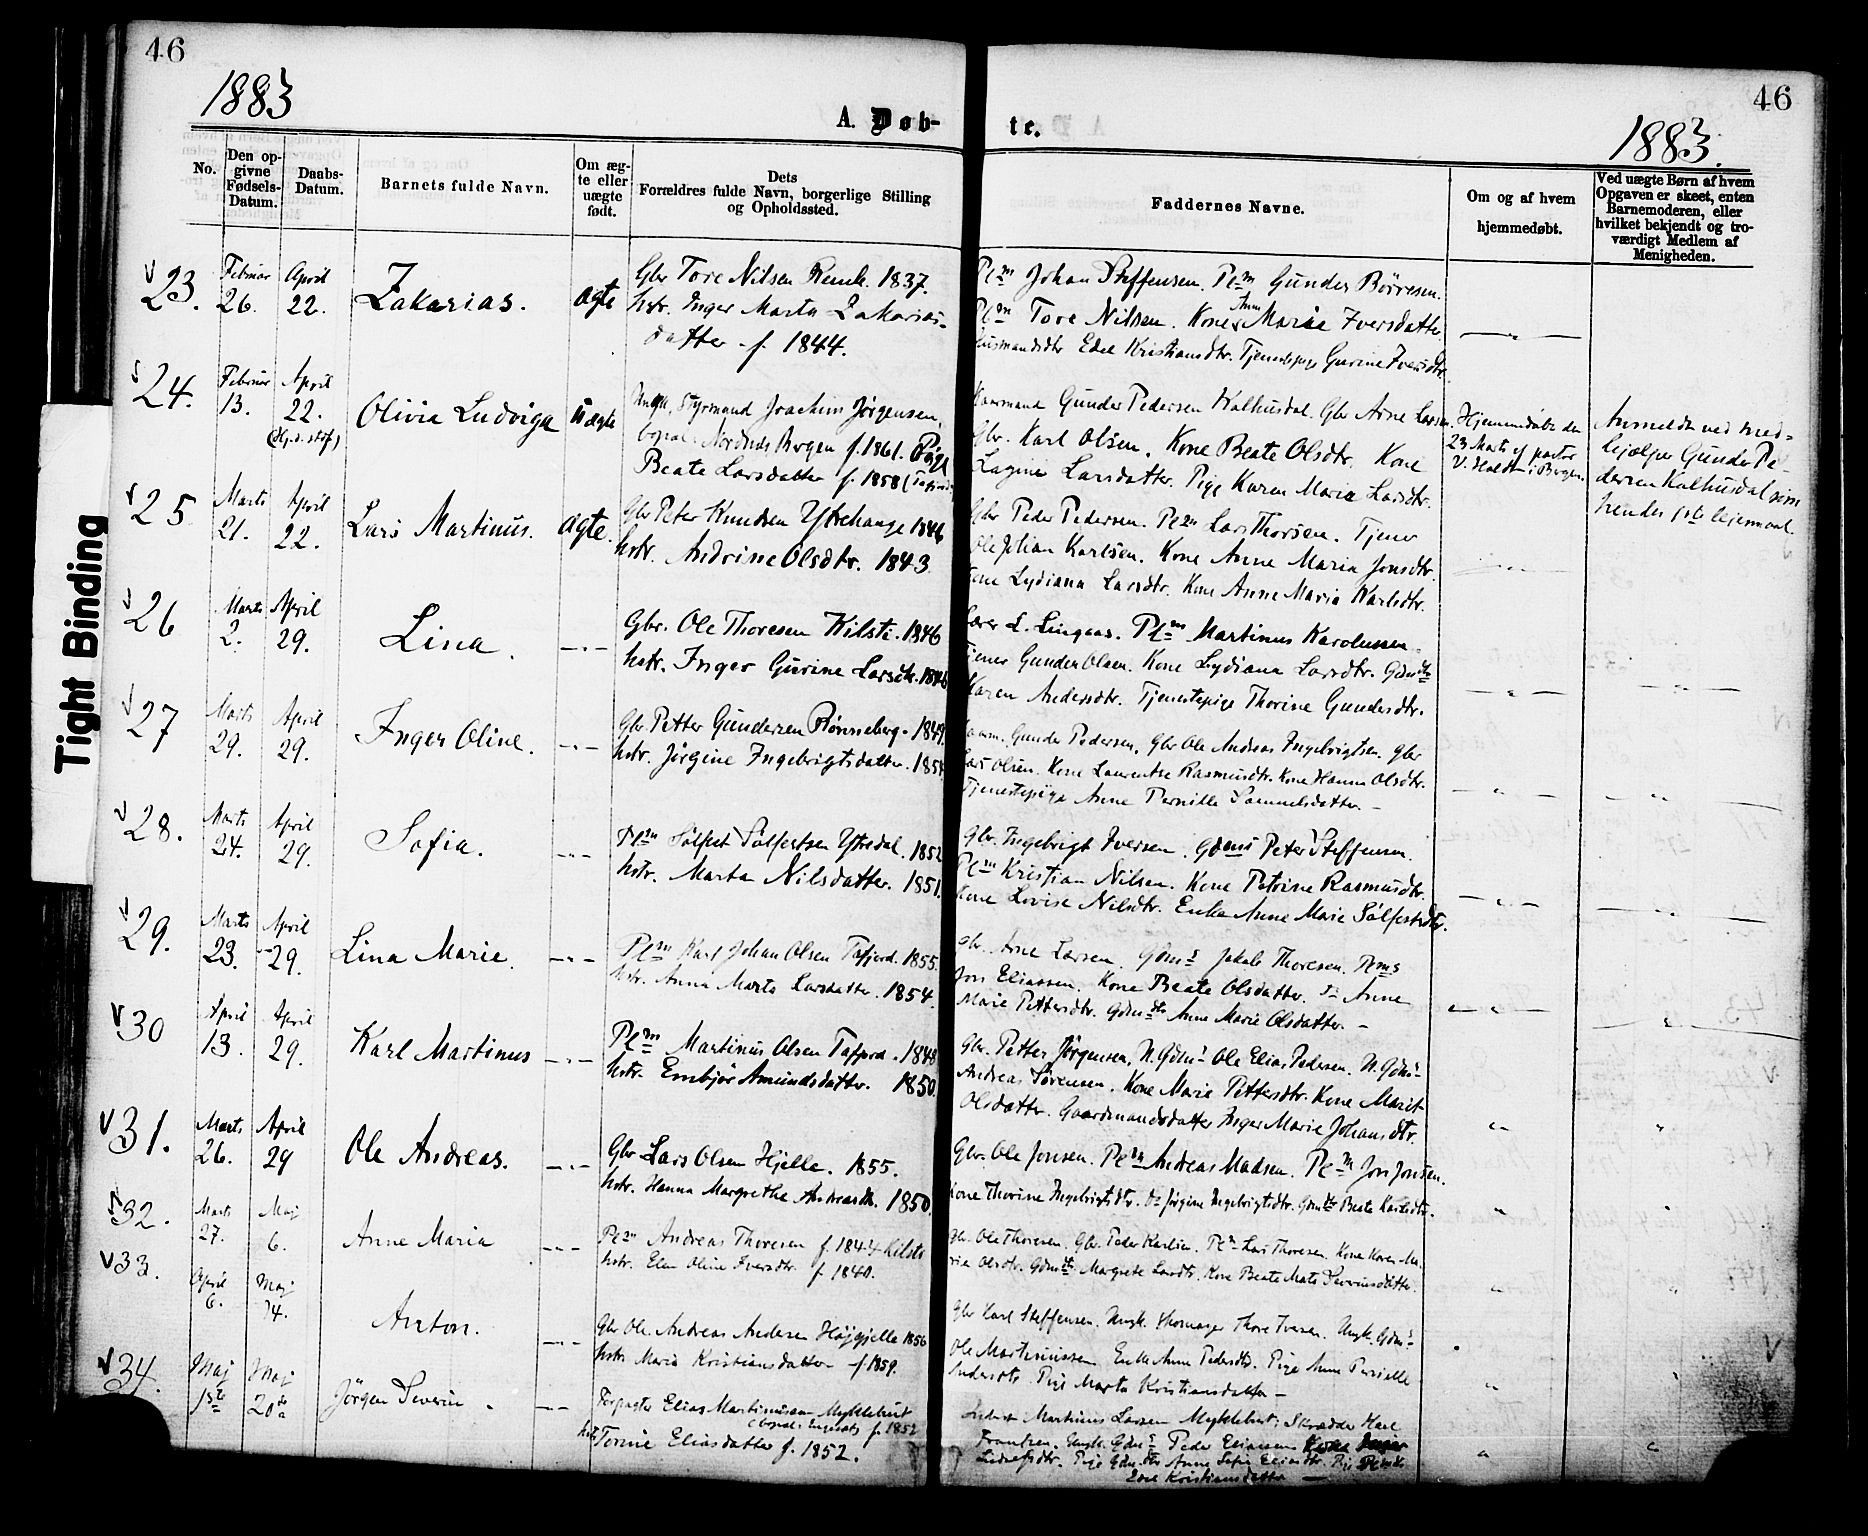 46
46
1883
1883.
A. Døb-
te.
No.
Den op-
givne
Fødsels-
Datum.
Daabs-
Datum.
Barnets fulde Navn.
Om æg-
te eller
uægte
født.
Dets
Forældres fulde Navn, borgerlige Stilling
og Opholdssted.
Faddernes Navne.
Om og af hvem
hjemmedøbt.
Ved uægte Børn af hvem
Opgaven er skeet, enten
Barnemoderen, eller
hvilket bekjendt og tro-
værdigt Medlem af
Menigheden.
Tight Binding
23.
Februar
26.
April
22.
Zakarias.
ægte
Gbr Tore Nilsen 1837.
hstr. Inger Marta Zakarias-
datter f. 1844.
Plm Johan Steffensen. Plm Gunder Børresen.
Plm Tore Nilsen. Kone Anne Marie Iversdatter
Edel Kristiansdtr. Tjenestepige Gurine
24.
Februar
13.
April
22.
Olivia Ludviga
Uægte
Ungk. Styrmand Joachim Jørgensen,
Nordnes Bergen f. 1861. Pige
Beate Larsdatter f. 1858
Gunder Pedersen Kalhusdal. Gbr Arne Larsen
Gbr. Karl Olsen. Kone Beate Olsdtr. Kone
Larsdatter. Pige Karen Maria Larsdtr.
Hjemmedøbt den
23 Marts af pastor
i Bergen.
Anmeldt ved med-
hjælper Gunder Pe-
dersen Kalhusdal som
hendes 1ste lejermaal.
25
Marts
21.
April
22.
Lars Martinus.
ægte.
Gbr Peter Knudsen Ytrehauge 1846
hstr. Andrine Olsdtr. 1843.
Gbr Peder Pedersen. Plm Lars Thorsen. Tjener
Ole Johan Karlsen. Kone Anne Maria Jonsdtr.
Kone Lydiana Larsdtr. Kone Anne Maria Karlsdtr.
26
Marts
2.
April
29.
Lina.
Gbr. Ole Thoresen Kilsti. 1846
hstr. Inger Gurine Larsdtr. 1846
Lærer L. Lingaas. Plm Martinus Karolussen.
Tjener Gunder Olsen. Kone Lydiana Larsdtr. Gdmdtr
Karen Andersdtr. Tjenestepige Thorine Gundersdtr.
27
Marts
29.
April
29.
Inger Oline.
Gbr Petter Gundersen Rønneberg. 1849.
hstr. Jørgine Ingebrigtsdatter. 1854
Gunder Pedersen, Gbr Ole Andreas Ingebrigtsen. Gbr
Lars Olsen. Kone Laurentse Rasmusdtr. Kone Hanna Olsdtr.
Tjenestepige Anne Pernille Samuelsdatter.
28.
Marts
24.
April
29.
Sofia.
Plm Sølfest Sølfestsen Ytredal. 1852
hstr. Marta Nilsdatter. 1851.
Gbr. Ingebrigt Iversen. Gdms Peter Steffensen.
Plm Kristian Nilsen. Kone Petrine Rasmusdtr.
Kone Lovise Nilsdtr. Enke Anne Marie Sølfestsdtr.
29.
Marts
23.
April
29.
Lina Marie.
Plm Karl Johan Olsen Tafjord. 1855.
hstr. Anna Marta Larsdatter. 1854.
Gbr. Arne Larsen. Gdms Jakob Thoresen. Plms
Jon Eliassen. Kone Beate Olsdatter. Do Anne
Marie Pettersdtr. Gdmdtr Anne Marie Olsdatter.
30
April
13.
April
29.
Karl Martinus
Plm Martinus Olsen Tafjord. 1848
hstr. Embjør Amundsdatter. 1850.
Gbr. Petter Jørgensen. U. Gdms Ole Elias Pedersen. U. Gdms
Andreas Sørensen. Kone Marie Pettersdtr. Kone Marit
Olsdatter. Gaardmandsdatter Inger Marie Johansdtr.
31.
Marts
26.
April
29
Ole Andreas.
Gbr Lars Olsen Hjelle. 1855.
hstr. Hanna Margrethe Andreasdtr. 1850.
Gbr. Ole Jonsen. Plm Andreas Madsen. Plm Jon Jonsen.
Kone Thorine Ingebrigtsdtr. Do Jørgine Ingebrigtsdtr. Gdmdtr Beate Karlsdtr.
32.
Marts
27.
Maj
6.
Anne Maria
Plm Andreas Thoresen f. 1844 Kilsti
hstr. Elen Oline Iversdtr. f. 1840.
Gbr. Ole Thoresen. Gbr. Peder Karlsen. Plm Lars Thoresen. Kone Karen Ma-
rie Olsdtr. Gdmdtr Margrete Larsdtr. Kone Beate Mata Severinsdatter.
33.
April
6.
Maj
14.
Anton.
Gbr Ole Andreas Andersen Højgjelle 1856
hstr Maria Kristiansdatter f. 1859.
Gbr Karl Steffensen. Ungk. Skomager Thore Iversen. Ungk. Gdms
Ole Martinussen Enke Anne Pedersdtr. Pige Anne Pernille
Andersdtr Pige Marta Kristiansdatter
34.
Maj
1ste
Maj
20de
Jörgen Severin
Forpagter Elias Martinussen Myklebust
f. 1852
hstr Tomine Eliasdatter f. 1852.
Martinus Larsen Myklebust. Skrædder Karl
Frantzen. Ungk. Gdms Peder Eliassen
Pige Gdmdtr Anne Sofie Eliasdtr. Pige
Edel Kristiansdatter